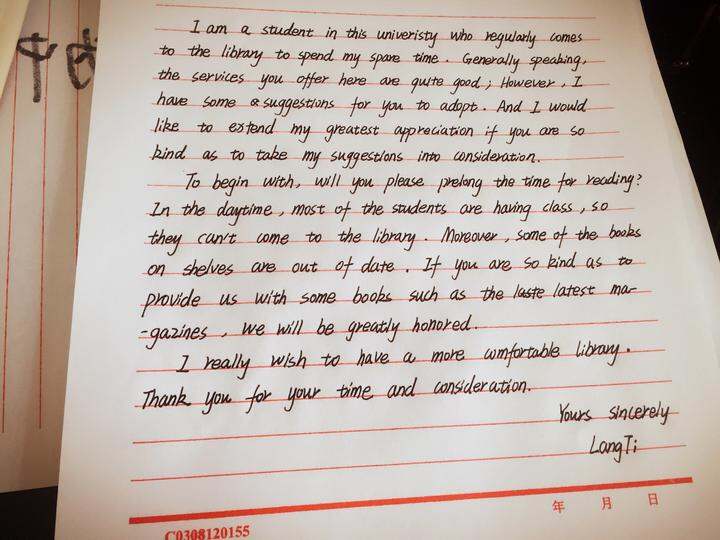 I am a student in this univeristy who regularly comes
to the library to spend my spare time. Generally speaking,
the services you offer here are quite good; However, I
have some suggestions for you to adopt. And I would
like to extend my greatest appreciation if you are so
kind as to take my suggestions into consideration.
To begin with, will you please prelong the time for reading?
In the daytime, most of the students are having class, so
they can't come to the library. Moreover, some of the books
on shelves are out of date. If you are so kind as to
provide us with some books such as the laste latest ma-
-gazines, we will be greatly honored.
I really wish to have a more comfortable library.
Thank you for your time and consideration.
Yours sincerely
LangTi
年 月 日
C0308120155